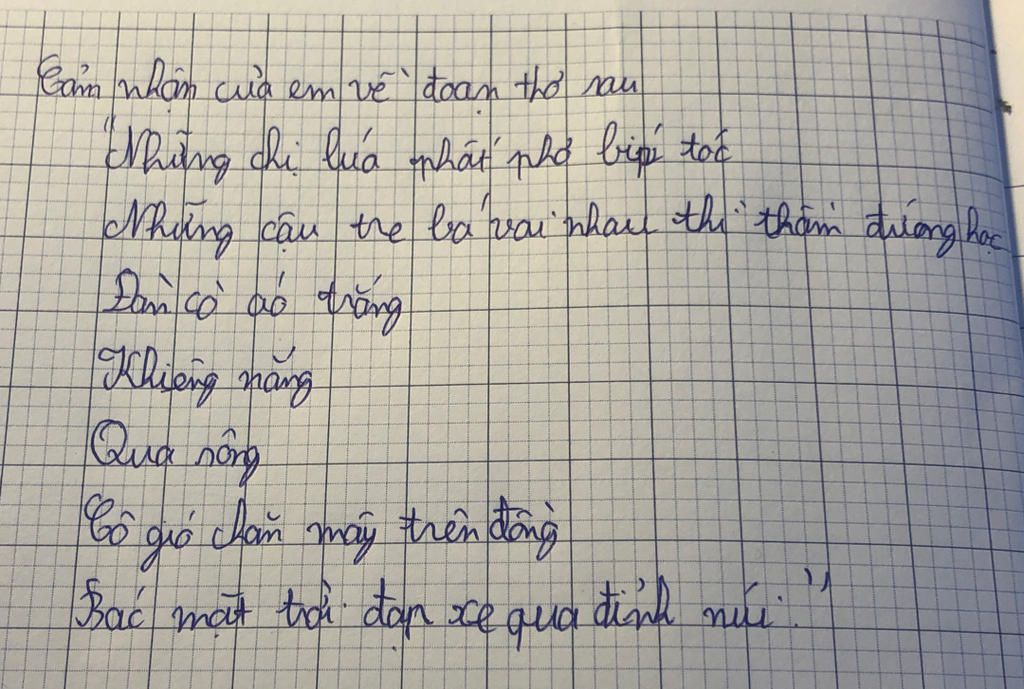 Cảm nhận của em về đoạn thơ sau
"Những chị lúa phất phơ bím tóc
Những cậu tre bá vai nhau thì thầm đứng học
Đàn cò áo trắng
Khiêng nắng
Qua sông
Cô gió chăn mây trên đồng
Bác mặt trời đạp xe qua đỉnh núi."